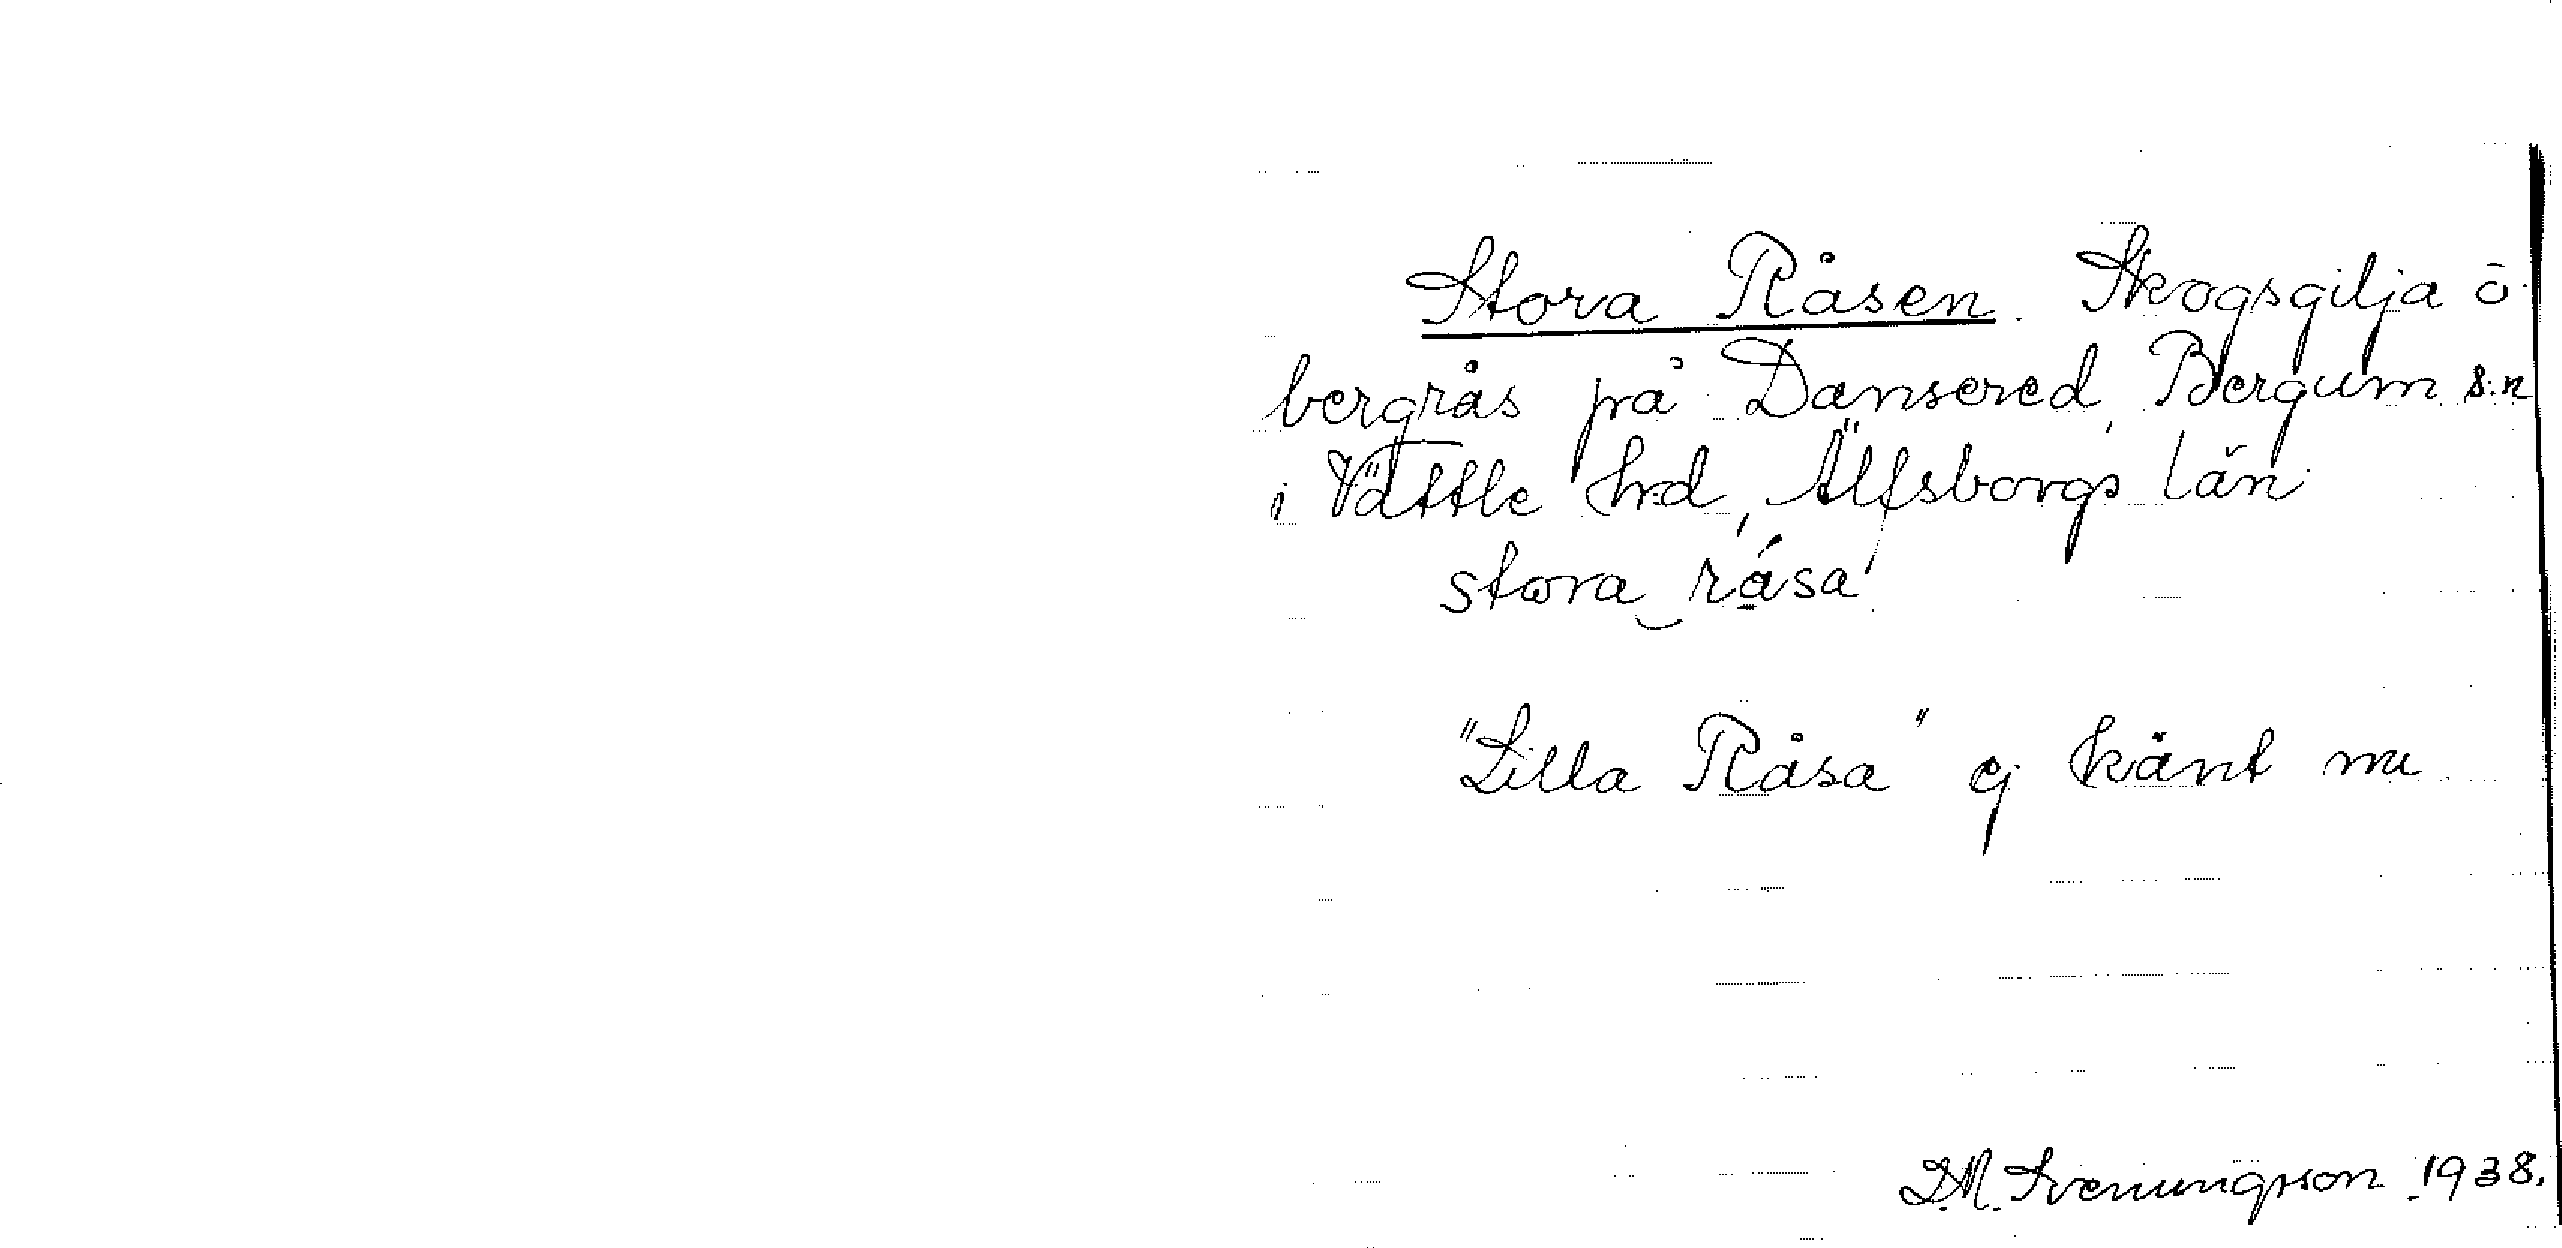 Stora Råsen. Skogsgilja o.
bergrås på Dansered, Bergum s:n
i Vättle hrd, Älfsborgs län
stora rása
"Lilla Råsa" ej känt nu
D.N. Svenungsson 1938.